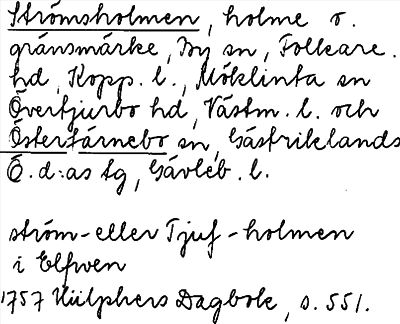 Strömsholmen, holme o.
gränsmärke, By sn, Folkare
hd, Kopp. l., Möklinta sn
Övertjurbo hd, Västm. l. och
Österfärnebo sn, Gästriklands
Ö. d:as tg, Gävleb. l.
ström- eller Tjuf-holmen
i Elfwen
1757 Hülphers Dagbok, s. 551.